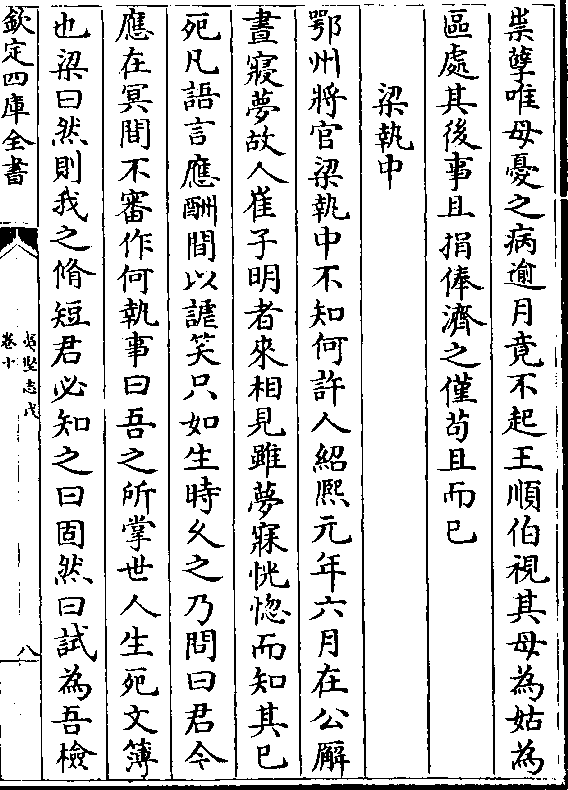 祟孽唯母憂之病逾月竟不起王順伯視其母為姑為
區處其後事且捐俸濟之僅苟且而已
梁執中
鄂州將官梁執中不知何許人紹熈元年六月在公廨
晝寢夢故人崔子明者來相見雖夢寐恍惚而知其已
死凡語言應酬間以謔笑只如生時久之乃問曰君今
應在冥間不審作何執事曰吾之所掌世人生死文簿
也梁曰然則我之脩短君必知之曰固然曰試為吾檢
欽定四庫全書
夷堅志戊
卷十
八